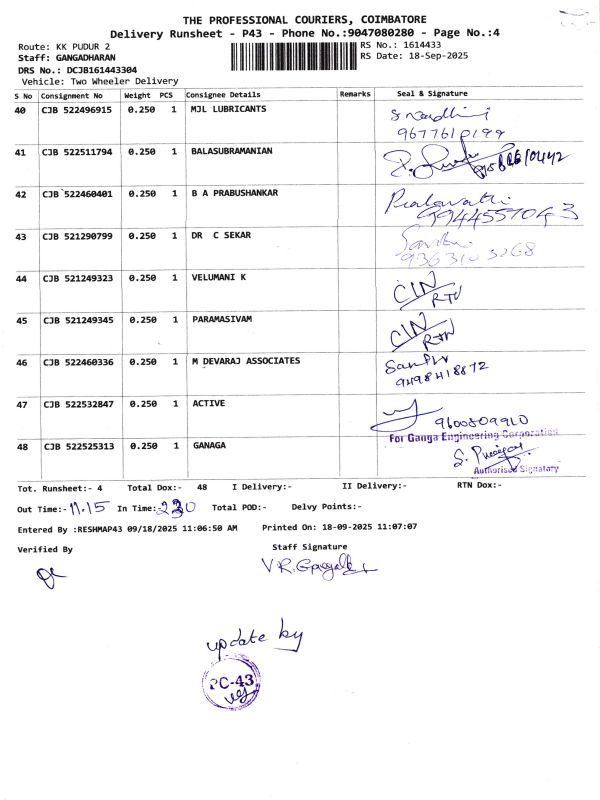 THE PROFESSIONAL COURIERS, COIMBATORE
Delivery Runsheet - P43 - Phone No.:9047080280 - Page No.:4
Route: KK PUDUR 2 RS No.: 1614433
Staff: GANGADHARAN RS Date: 18-Sep-2025
DRS No.: DCJB161443304
Vehicle: Two Wheeler Delivery
S No Consignment No Weight PCS Consignee Details Remarks Seal & Signature
40 CJB 522496915 0.250 1 MJL LUBRICANTS
41 CJB 522511794 0.250 1 BALASUBRAMANIAN
42 CJB 522460401 0.250 1 B A PRABUSHANKAR
9944557043
43 CJB 521290799 0.250 1 DR C SEKAR
9363103068
44 CJB 521249323 0.250 1 VELUMANI K CIN
RTN
45 CJB 521249345 0.250 1 PARAMASIVAM CIN
RTN
46 CJB 522460336 0.250 1 M DEVARAJ ASSOCIATES
9498418872
47 CJB 522532847 0.250 1 ACTIVE
9600809910
For Ganga Engineering Corporation
48 CJB 522525313 0.250 1 GANAGA
Authorised Signatory
Tot. Runsheet:- 4 Total Dox:- 48 I Delivery:- II Delivery:- RTN Dox:-
Out Time:- 11.15 In Time:- 230 Total POD:- Delvy Points:-
Entered By :RESHMAP43 09/18/2025 11:06:50 AM Printed On: 18-09-2025 11:07:07
Verified By Staff Signature
update by
PC-43